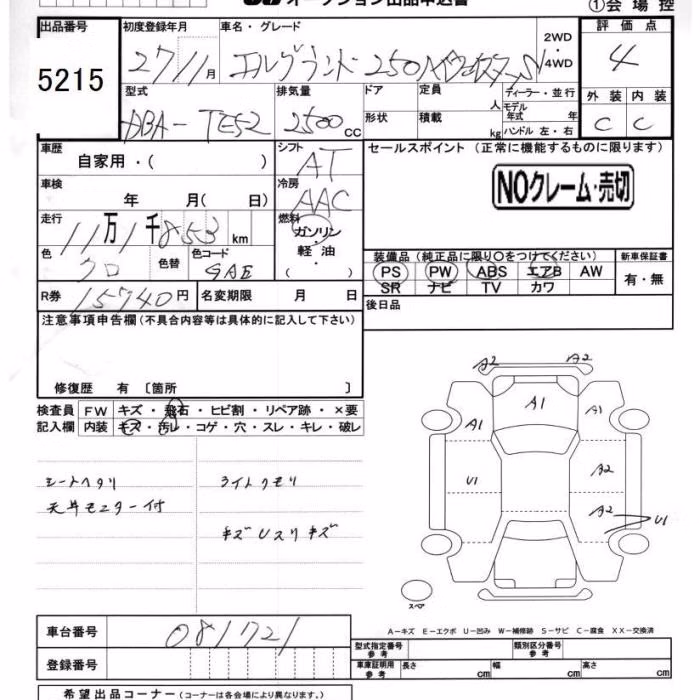 オークション出品申込書 ①会場控
出品番号 初度登録年月 車名・グレード 2WD ・ 4WD 評価点
5215 27/11月 エルグランド 250ハイウェイスターS 4
型式 排気量 ドア 定員 人 ディーラー・並行 外装 内装
DBA-TE52 2500cc 形状 積載 kg モデル年式 年 ハンドル 左・右 C C
車歴 自家用・( ) シフト AT セールスポイント (正常に機能するものに限ります)
車検 年 月( 日) 冷房 AAC NOクレーム・売切
走行 11万1千853km 燃料 ガソリン・軽油・( )
色 クロ 色替 色コード GAE 装備品 (純正品に限り○をつけてください) 新車保証書
PS PW ABS エアB AW 有・無
SR ナビ TV カワ
R券 15740円 名変期限 月 日 後日品
注意事項申告欄 (不具合内容等は具体的に記入して下さい)
修復歴 有 〔箇所 〕
検査員 FW キズ・飛石・ヒビ割・リペア跡・×要
記入欄 内装 キズ・汚レ・コゲ・穴・スレ・キレ・破レ
シートヘタリ ライトクモリ
天井モニター付
キズ Uスリキズ
A2 A2
A1
A1 A1
U1 A2
A2 U1
スペア
A-キズ E-エクボ U-凹み W-補修跡 S-サビ C-腐食 XX-交換済
車台番号 081721
型式指定番号 参考 類別区分番号 参考
登録番号 車庫証明用 参考 長さ cm 幅 cm 高さ cm
希望出品コーナー (コーナーは各会場により異なります。)